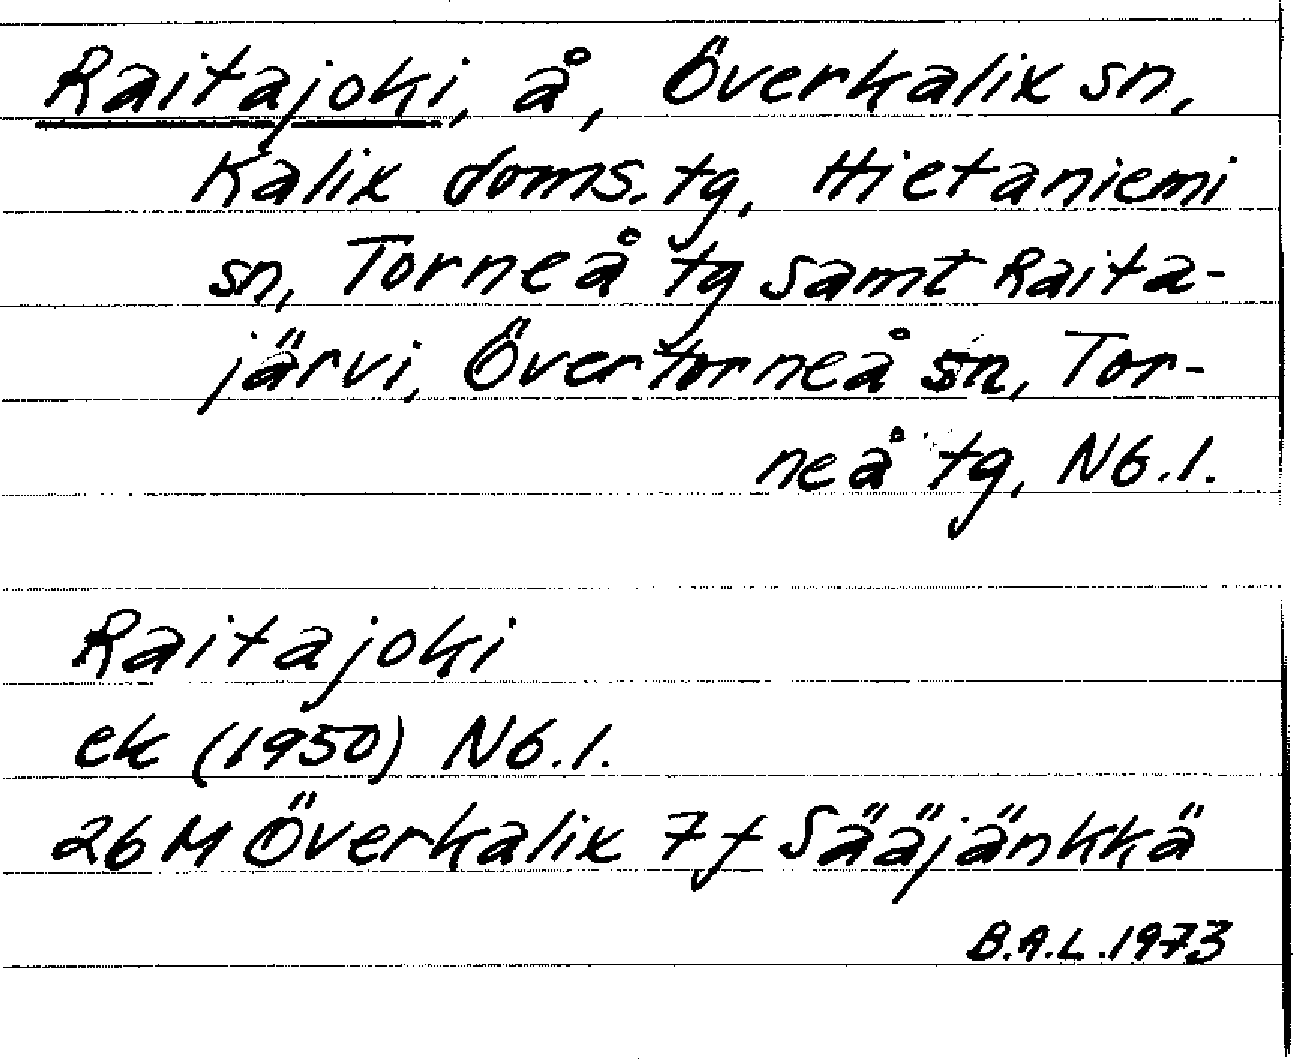 Raitajoki, å, Överkalix sn,
Kalix doms. tg, Hietaniemi
sn, Torneå tg samt Raita-
järvi, Övertorneå sn, Tor-
neå tg, Nb.l.
Raitajoki
ek (1950) Nb.l.
26 M Överkalix 7 f Sääjänkkä
B.A.L. 1973